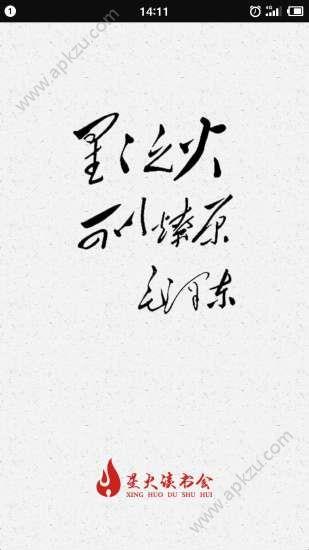 1 14:11 4G
www.apkzu.com
星星之火
可以燎原
毛泽东
星火读书会
XING HUO DU SHU HUI
www.apkzu.com